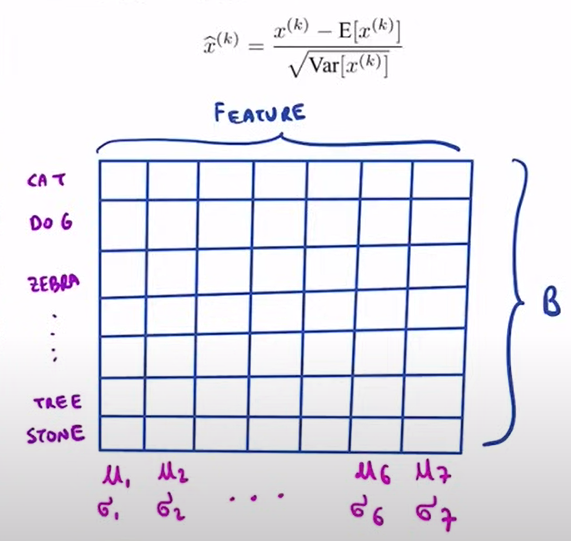 x̂^(k) = (x^(k) − E[x^(k)]) / √Var[x^(k)]
FEATURE
CAT
DOG
ZEBRA
B
TREE
STONE
μ₁ μ₂ ... μ₆ μ₇
σ₁ σ₂ σ₆ σ₇